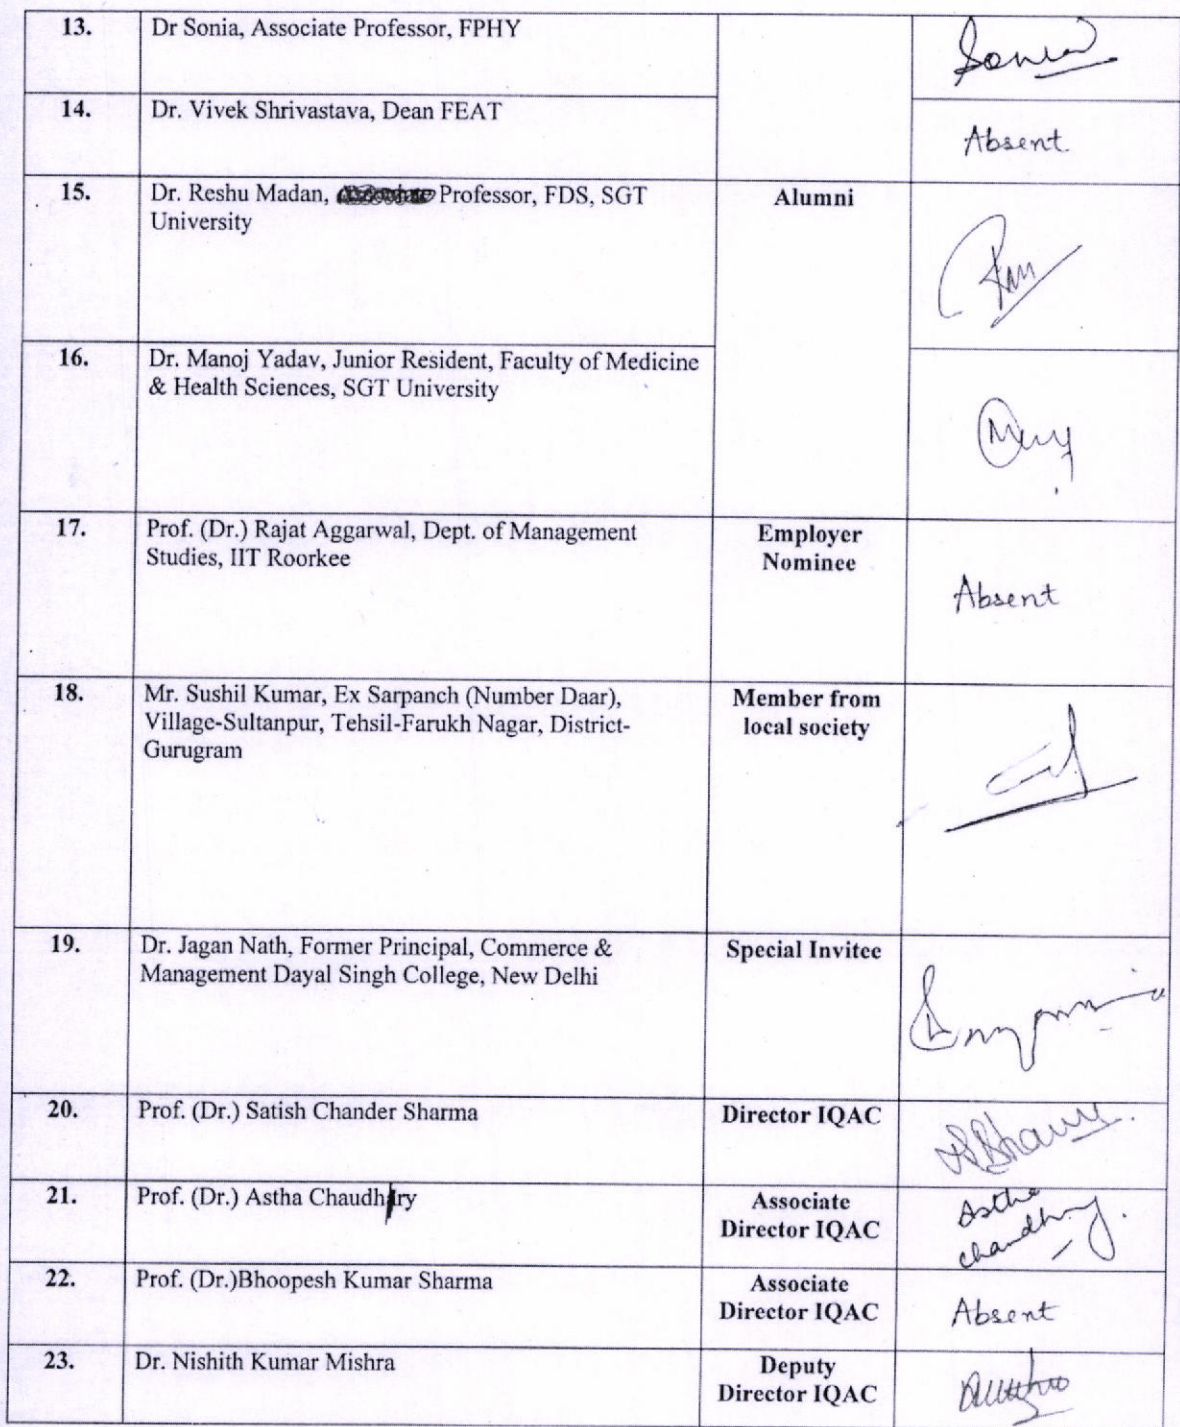 13.
Dr Sonia, Associate Professor, FPHY
Sonia
14.
Dr. Vivek Shrivastava, Dean FEAT
Absent
15.
Dr. Reshu Madan, Professor, FDS, SGT
University
Alumni
16.
Dr. Manoj Yadav, Junior Resident, Faculty of Medicine
& Health Sciences, SGT University
17.
Prof. (Dr.) Rajat Aggarwal, Dept. of Management
Studies, IIT Roorkee
Employer
Nominee
Absent
18.
Mr. Sushil Kumar, Ex Sarpanch (Number Daar),
Village-Sultanpur, Tehsil-Farukh Nagar, District-
Gurugram
Member from
local society
19.
Dr. Jagan Nath, Former Principal, Commerce &
Management Dayal Singh College, New Delhi
Special Invitee
20.
Prof. (Dr.) Satish Chander Sharma
Director IQAC
21.
Prof. (Dr.) Astha Chaudhry
Associate
Director IQAC
Astha
Chaudhry
22.
Prof. (Dr.)Bhoopesh Kumar Sharma
Associate
Director IQAC
Absent
23.
Dr. Nishith Kumar Mishra
Deputy
Director IQAC